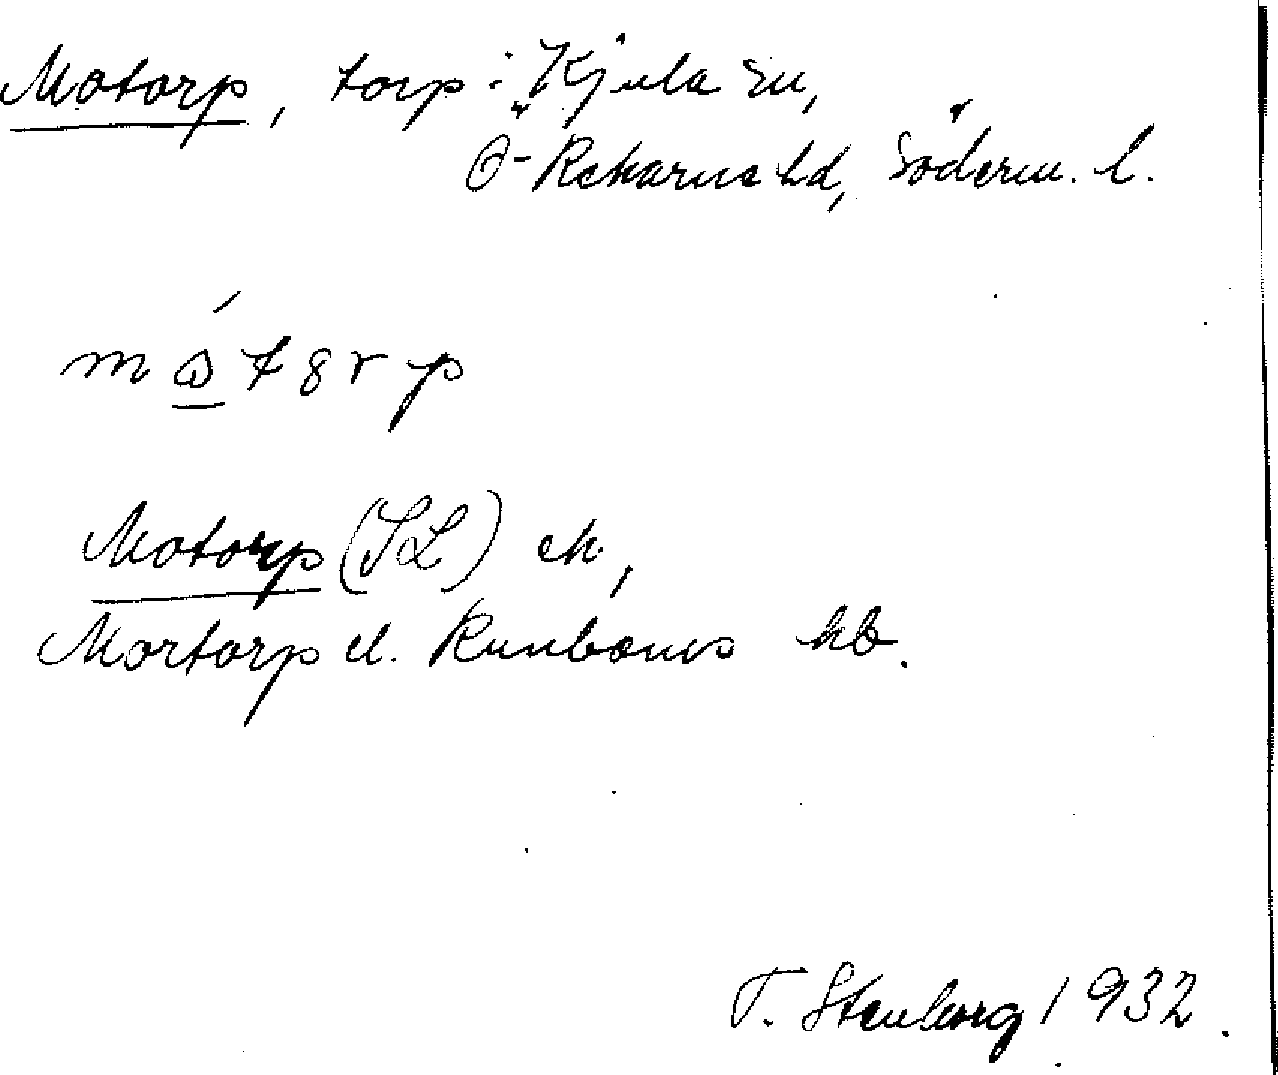 Motorp, torp i Kjula sn,
Ö-Rekarne hd, Söderm. l.
Motorp (SL) ek,
Mortorp el. Runboms kb.
T. Stenborg 1932.